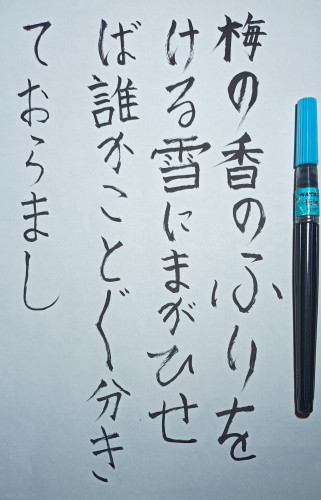 梅の香のふりを
ける雪にまがひせ
ば誰かこと〲分き
ておらまし